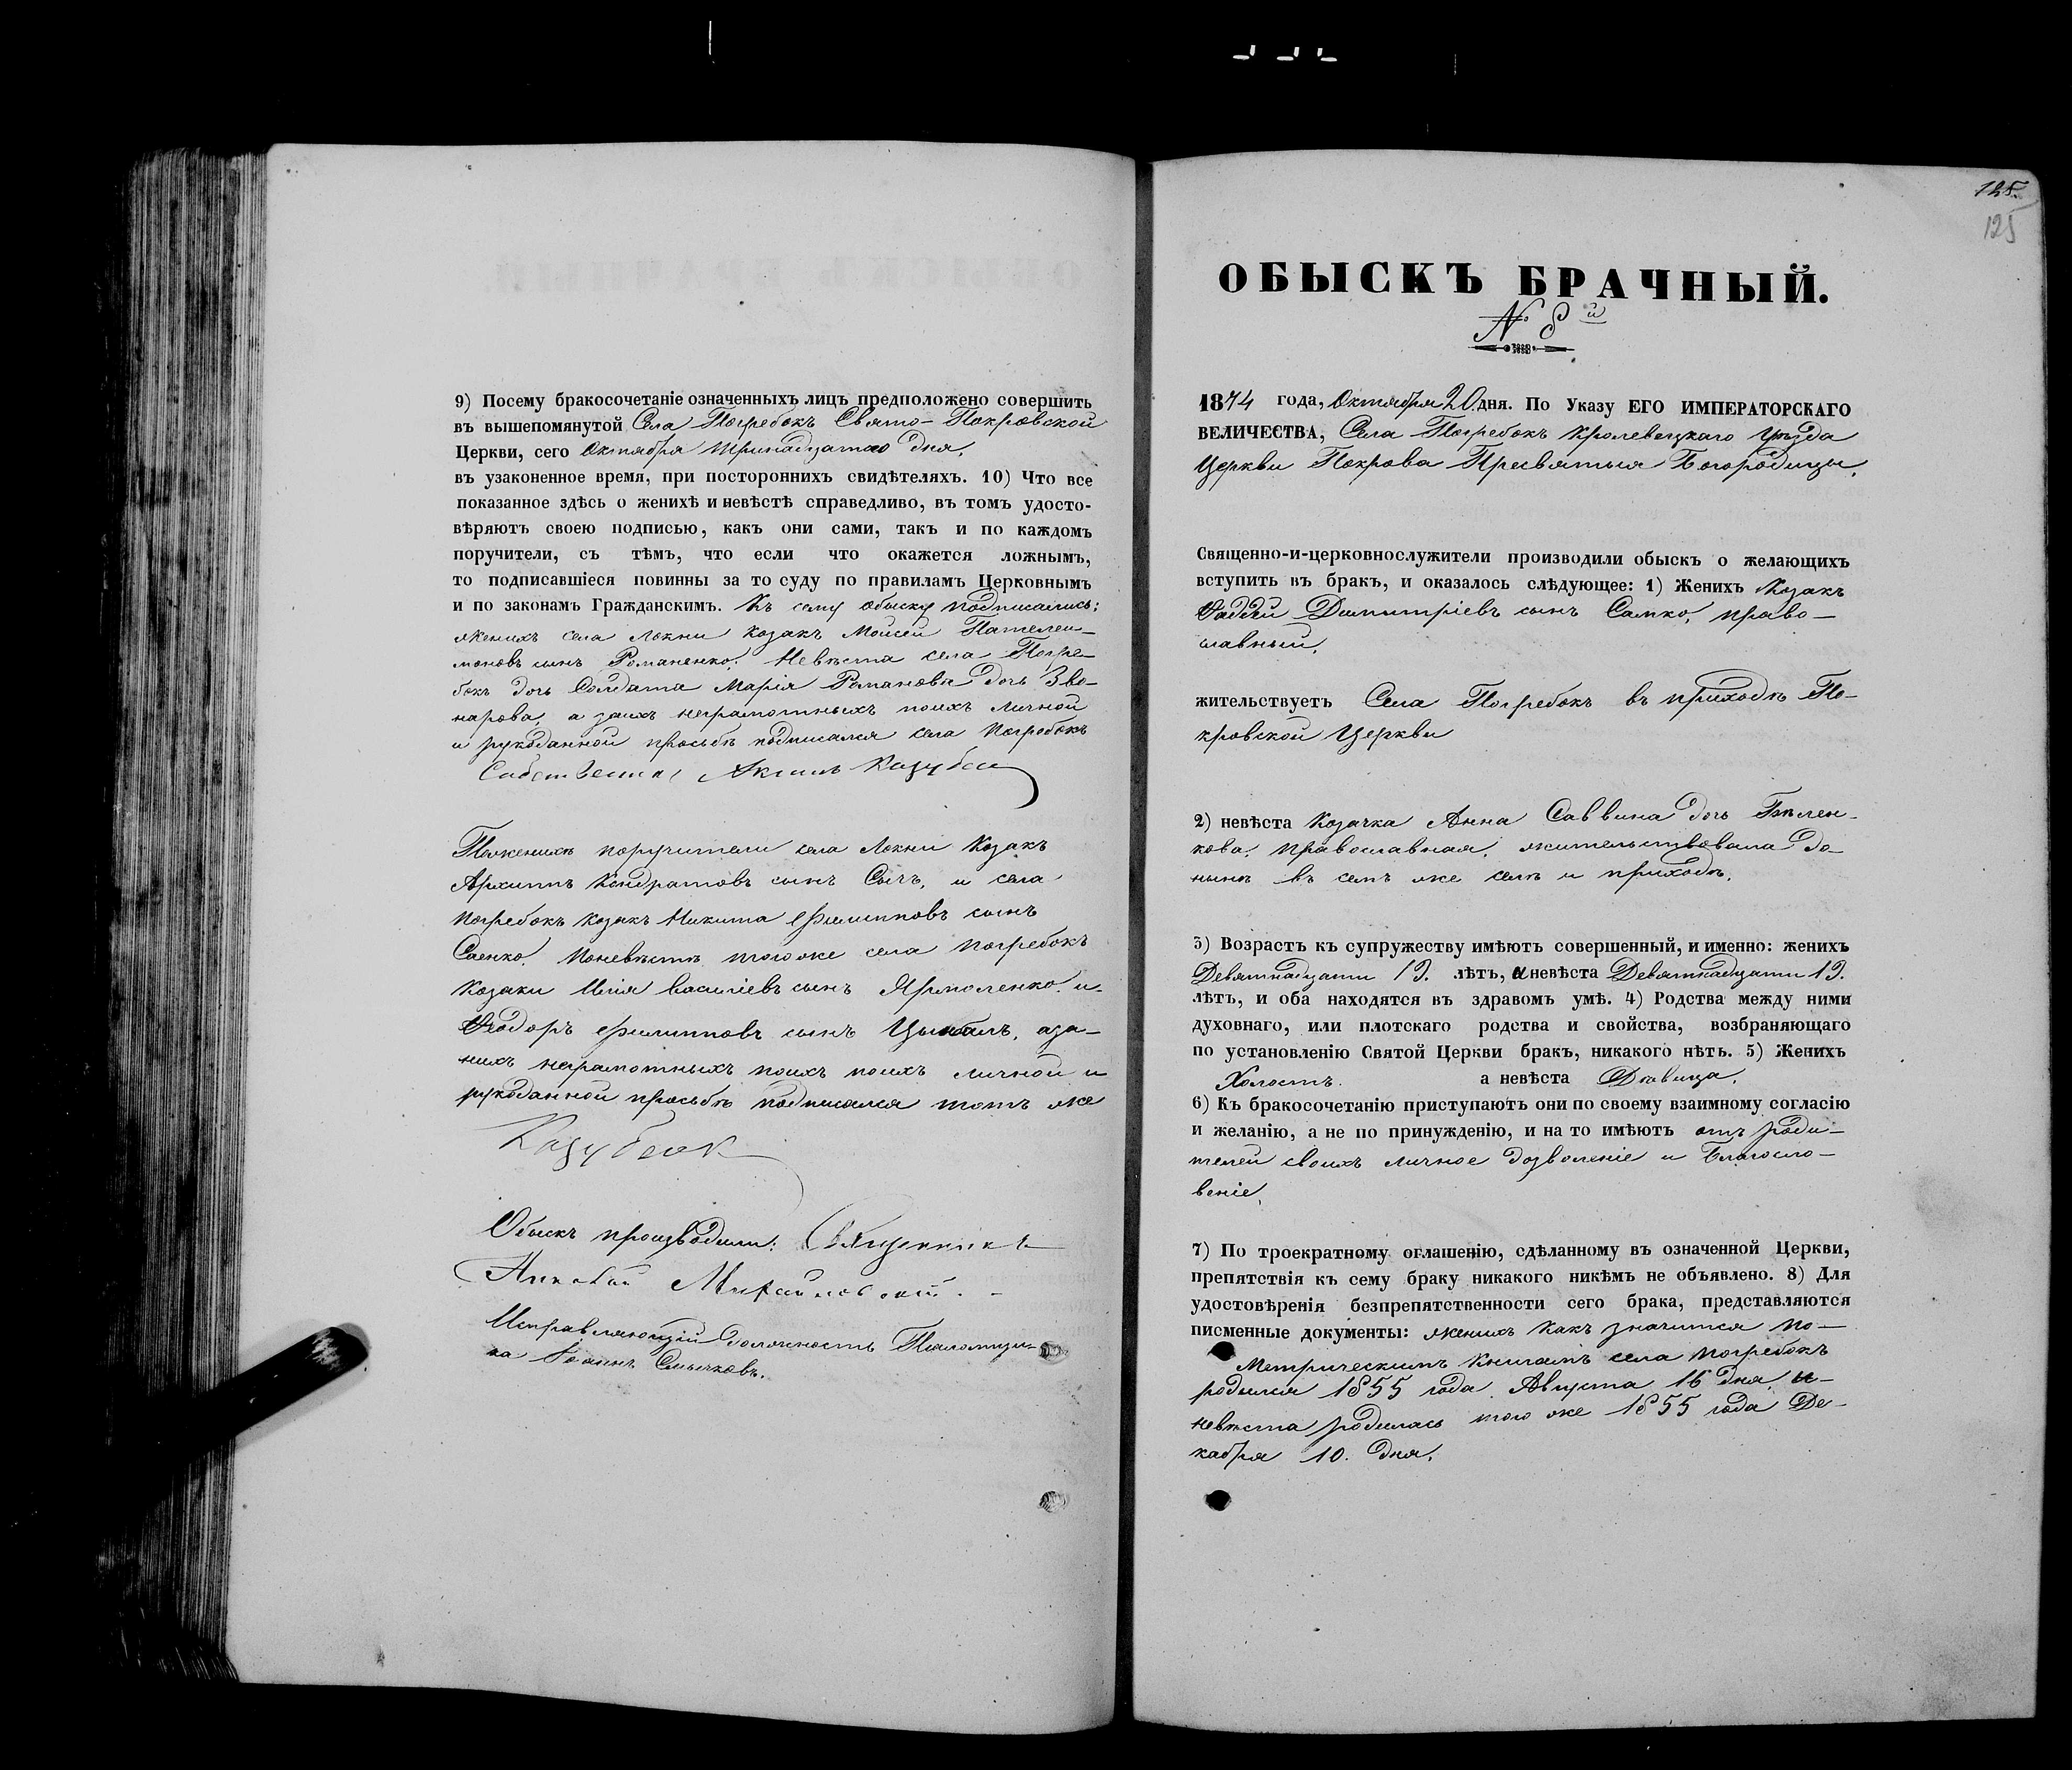 9) Посему бракосочетаніе означенныхъ лицъ предположено совершить
въ вышепомянутой Села Погребокъ Свято-Покровской
Церкви, сего Октября тринадцатаго дня,
въ узаконенное время, при постороннихъ свидѣтеляхъ. 10) Что все
показанное здѣсь о женихѣ и невѣстѣ справедливо, въ томъ удосто-
вѣряютъ своею подписью, какъ они сами, такъ и по каждомъ
поручители, съ тѣмъ, что если что окажется ложнымъ,
то подписавшіеся повинны за то суду по правиламъ Церковнымъ
и по законамъ Гражданскимъ. Къ сему обыску подписались:
женихъ села Локни козакъ Моисей Пателей-
моновъ сынъ Романенко; Невѣста села Погре-
бокъ дочь Солдата Марія Романова дочь Зво-
нарова, а заихъ неграмотныхъ поихъ личной
и рукоданной просьбѣ подписался села Погребокъ
Козубен
Поженихѣ поручители села Локни Козакъ
Архипъ Кондратовъ сынъ Сычъ, и села
Погребокъ козакъ Никита Филипповъ сынъ
Саенко. Поневѣстѣ тогоже села Погребокъ
Козаки Илія Василіевъ сынъ Ярмоленко. и
Ѳеодоръ Филипповъ сынъ Цымбалъ, аза-
нихъ неграмотныхъ поихъ поихъ личной и
рукоданной просьбѣ подписался тотъ же
Козубенк
Обыскъ производили: Священникъ
Михайловскій.
Исправляющій должность Псаломщи-
ка Іоаннъ Смычковъ.
125.
125
ОБЫСКЪ БРАЧНЫЙ.
№ 8й
1874 года, Октября 20 дня. По Указу ЕГО ИМПЕРАТОРСКАГО
ВЕЛИЧЕСТВА, Села Погребокъ Кролевецкаго Уѣзда
Церкви Покрова Пресвятыя Богородицы,
Священно-и-церковнослужители производили обыскъ о желающихъ
вступить въ бракъ, и оказалось слѣдующее: 1) Женихъ Козакъ
Ѳаддей Димитріевъ сынъ Самко, право-
славный,
жительствуетъ Села Погребокъ въ приходѣ По-
кровской Церкви
2) невѣста Козачка Анна Саввина дочь Бѣлен-
кова, православная, жительствовала до-
нынѣ въ семъ же селѣ и приходѣ.
3) Возрастъ къ супружеству имѣютъ совершенный, и именно: женихъ
Девятнадцати 19. лѣтъ, а невѣста Девятнадцати 19.
лѣтъ, и оба находятся въ здравомъ умѣ. 4) Родства между ними
духовнаго, или плотскаго родства и свойства, возбраняющаго
по установленію Святой Церкви бракъ, никакого нѣтъ. 5) Женихъ
Холостъ. а невѣста Дѣвица.
6) Къ бракосочетанію приступаютъ они по своему взаимному согласію
и желанію, а не по принужденію, и на то имѣютъ отъ роди-
телей своихъ личное дозволеніе и благосло-
веніе,
7) По троекратному оглашенію, сдѣланному въ означенной Церкви,
препятствія къ сему браку никакого никѣмъ не объявлено. 8) Для
удостовѣренія безпрепятственности сего брака, представляются
писменные документы: женихъ какъ значится по-
Метрическимъ книгамъ села Погребокъ
родился 1855 года Августа 16 дня, и-
невѣста родилась того же 1855 года Де-
кабря 10. дня.